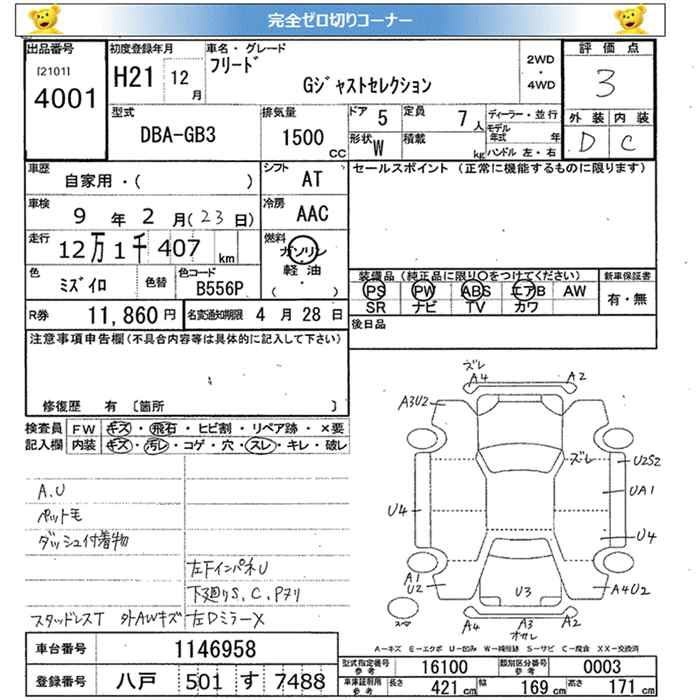 完全ゼロ切りコーナー
出品番号 初度登録年月 車名・グレード 2WD・4WD 評価点
[2101] 4001 H21 12月 フリード Gジャストセレクション 3
型式 排気量 ドア 5 定員 7人 ディーラー・並行 外装 内装
DBA-GB3 1500CC 形状 W 積載 kg モデル年式 年 D C
ハンドル 左・右
車歴 自家用・( ) シフト AT セールスポイント (正常に機能するものに限ります)
車検 9年2月(23日) 冷房 AAC
走行 12万1千407km 燃料 ガソリン・軽油・( )
色 ミズイロ 色替 色コード B556P 装備品 (純正品に限り○をつけてください) 新車保証書
PS PW ABS エアB AW 有・無
SR ナビ TV カワ
R券 11,860円 名変通知期限 4月28日 後日品
注意事項申告欄(不具合内容等は具体的に記入して下さい)
修復歴 有 [箇所 ]
検査員 FW キズ・飛石・ヒビ割・リペア跡・×要
記入欄 内装 キズ・汚レ・コゲ・穴・スレ・キレ・破レ
A.U
ペット毛
ダッシュ付着物
左下インパネU
下廻りS、C、Pアリ
スタッドレスT 外AWキズ 左DミラーX
ズレ
A4 A2
A3U2
ズレ U2S2
UA1
U4 U4
A1
U2 U3 A4U2
A2 A3 A2
オサレ
A-キズ E-エクボ U-凹み W-補修跡 S-サビ C-腐食 XX-交換済
車台番号 1146958
登録番号 八戸 501 す 7488
型式指定番号 参考 16100 類別区分番号 参考 0003
車庫証明用 参考 長さ 421cm 幅 169cm 高さ 171cm